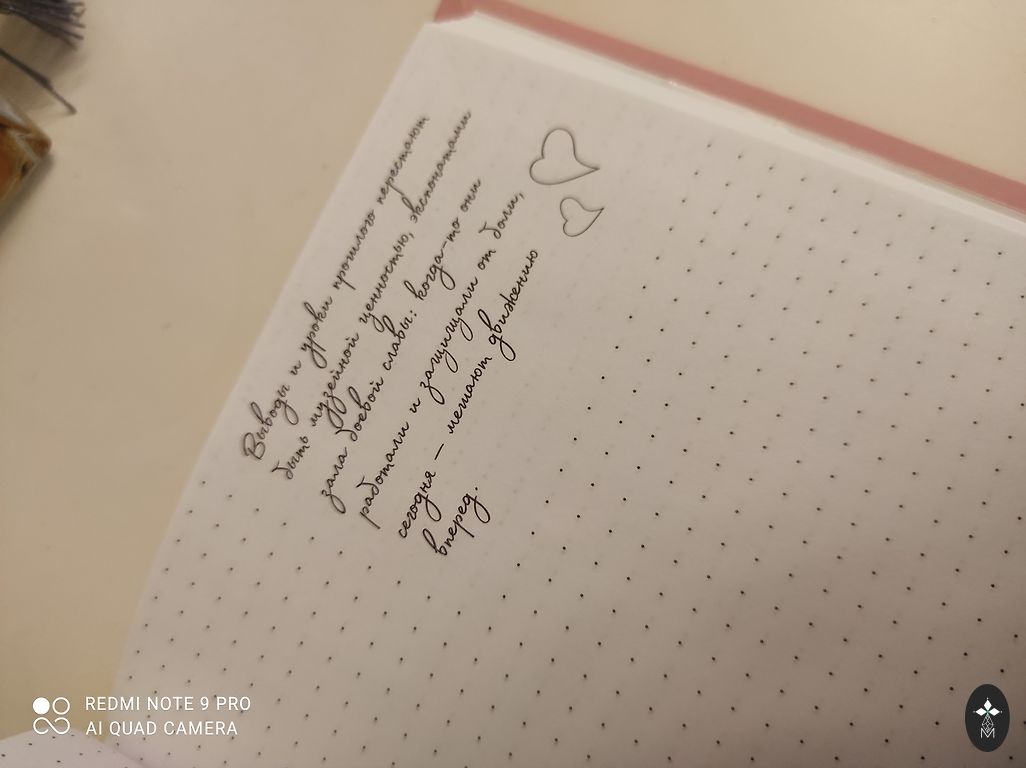 Выводы и уроки прошлого перестают
быть музейной ценностью, экспонатами
зала боевой славы: когда-то они
работали и защищали от боли,
сегодня – мешают движению
вперед.
REDMI NOTE 9 PRO
AI QUAD CAMERA
M